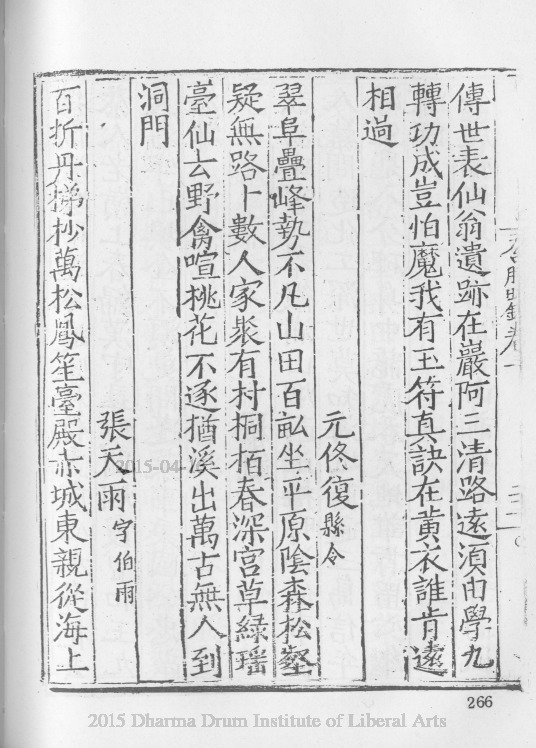 傳世表仙翁遺跡在巖阿三清路遠須由學九
轉功成豈怕魔我有玉符真訣在黃衣誰肯遠
相過
元佟復縣令
翠阜疊峰勢不凡山田百畝坐平原陰森松壑
疑無路卜數人家聚有村桐栢春深宮草綠瑶
臺仙去野禽喧桃花不逐猶溪出萬古無人到
洞門
張天雨字伯雨
百折丹梯抄萬松鳳笙臺殿赤城東親從海上
266
2015-04-
2015 Dharma Drum Institute of Liberal Arts